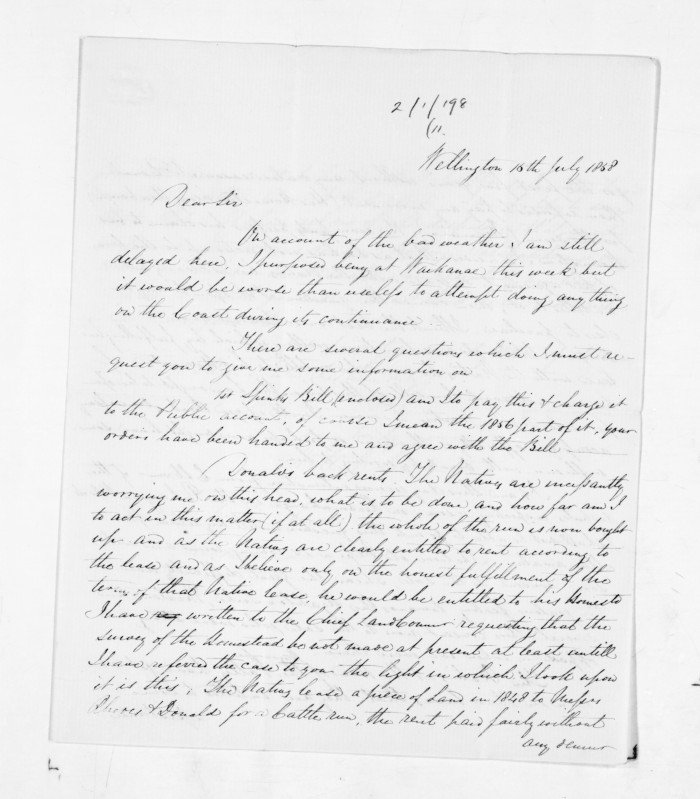 2/1/198
(11.
Wellington 16th July 1858
Dear Sir
On account of the bad weather I am still
delayed here, I purposed being at Waikanae this week but
it would be worse than useless to attempt doing anything
on the Coast during its continuance.
There are several questions which I must re-
quest you to give me some information on
1st Spinks Bill (enclosed) am I to pay this & charge it
to the Public account, of course I mean the 1856 part of it, your
orders have been handed to me and agree with the Bill
Donald's back rents. The Natives are incessantly
worrying me on this head, what is to be done and how far am I
to act in this matter (if at all) the whole of the run is now bought
up and as the Natives are clearly entitled to rent according to
the lease and as I believe only on the honest fulfillment of the
terms of that Native lease, he would be entitled to his Homestd
I have written to the Chief Land Commr requesting that the
survey of the Homestead be not made at present at least untill
I have referred the case to you the light in which I look upon
it is this, The Natives lease a piece of Land in 1848 to Messrs
& Donald for a Cattle run, the rent paid fairly without
any demur